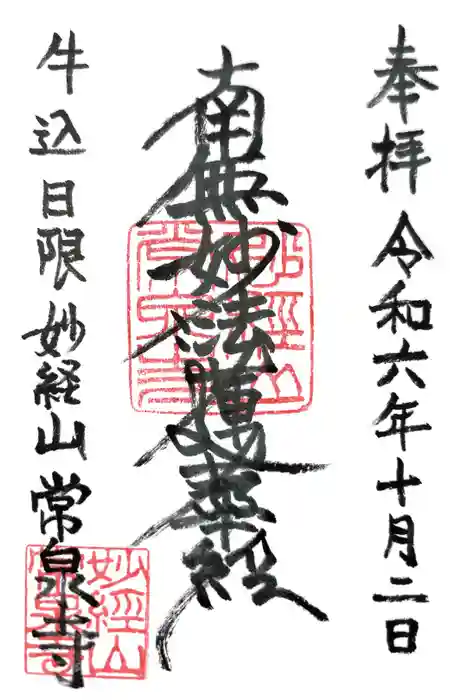 奉拝 令和六年十月二日
南無妙法蓮華経
牛込日限妙経山常泉寺
妙經山
常泉寺
妙經山
常泉寺